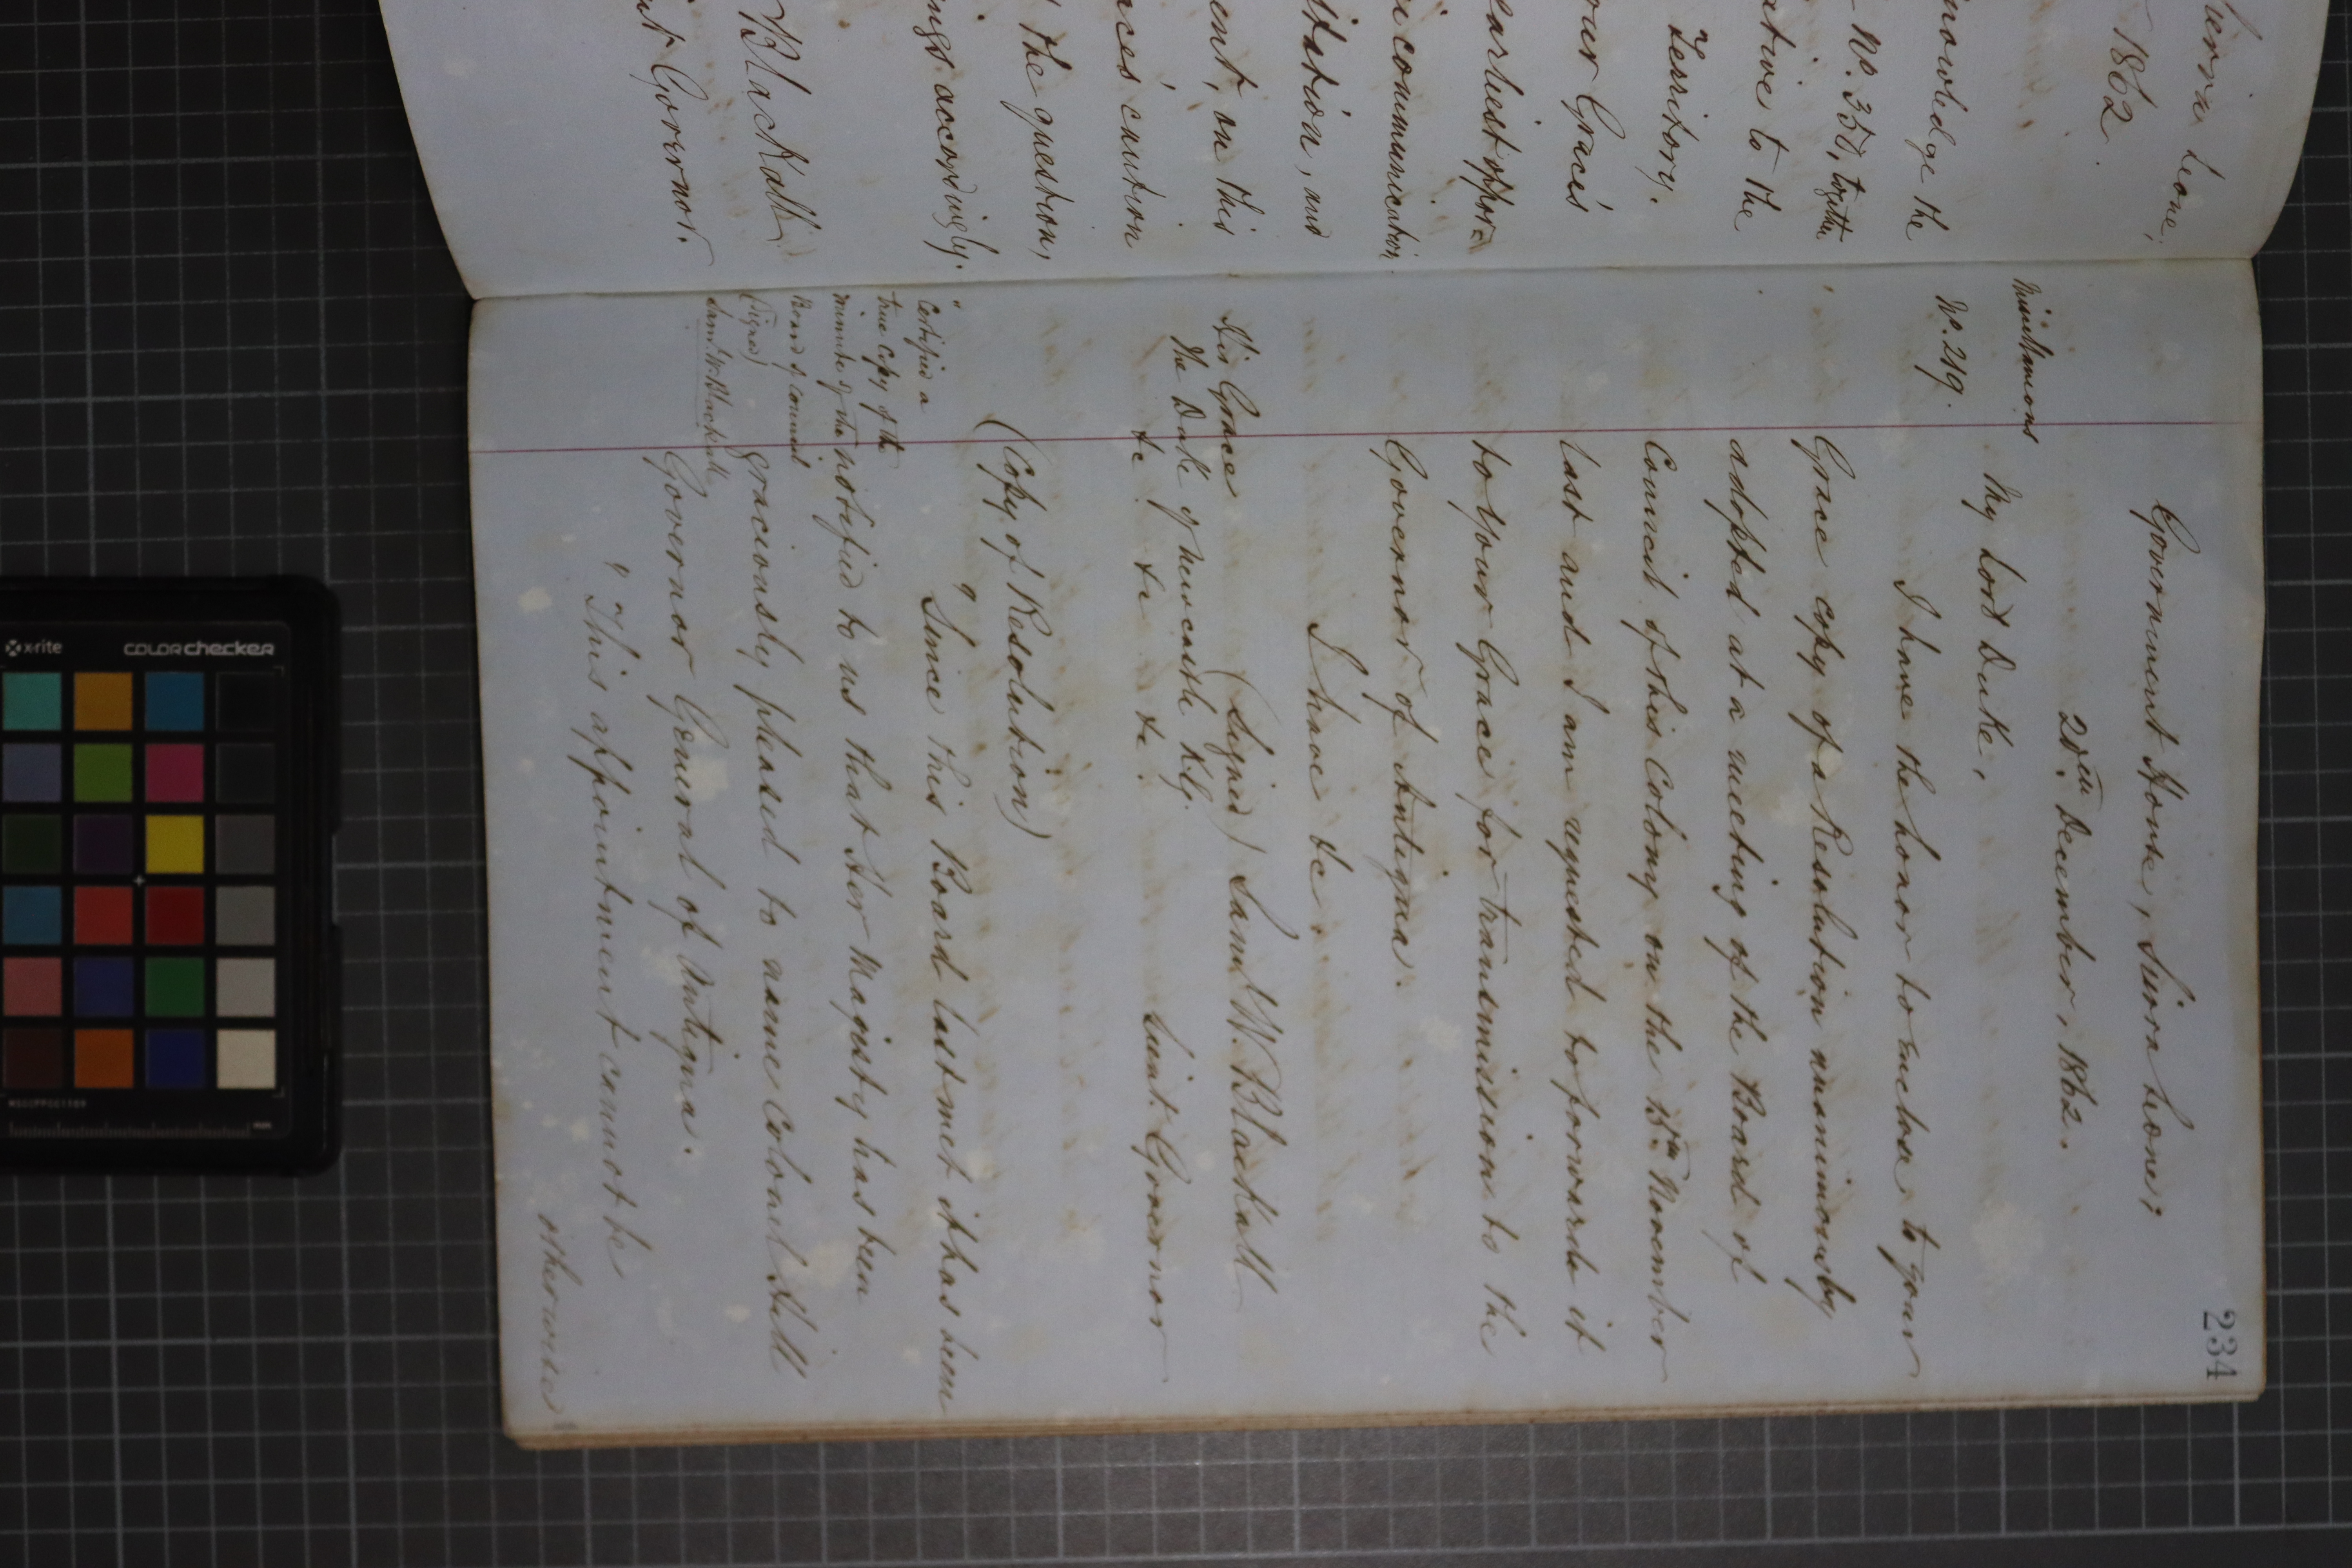 ierra Leone,
1862.
nowledge the
No. 358, together
ative to the
Territory.
our Grace's
earliest oppor=
communication
itation, and
ent, on this
ace's caution
the question,
ings accordingly.
Blackall
nt Governor.
234
Government House, Sierra Leone,
20th December, 1862.
Miscellaneous
No. 219.
My Lord Duke,
I have the honor to enclose to your
Grace copy of a Resolution unanimously
adopted at a meeting of the Board of
Council of this Colony on the November
last and I am requested to forward it
to Your Grace for transmission to the
Governor of Antigua.
I have &c.
(Signed) Saml. W. Blackall
Lieut. Governor
His Grace
the Duke of Newcastle K.G.
&c &c &c.
(Copy of Resolution)
"Certified a
true copy of the
minute of the
Board of Council
(Signed)
Saml. W. Blackall
" Since this Board last met it has been
notified to us that Her Majesty has been
graciously pleased to name Colonel Hill
Governor General of Antigua.
" This appointment cannot be
otherwise
x-rite
colorchecker